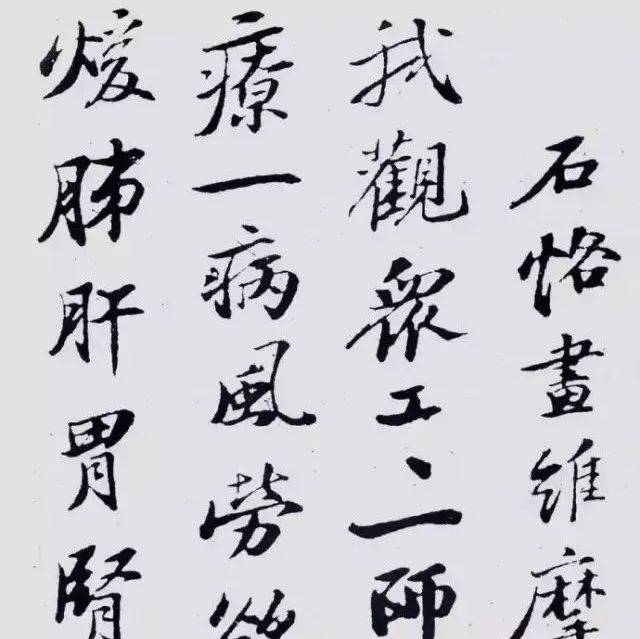 石恪畫維摩
我觀衆工〻一師
療一病風勞
煖肺肝胃腎